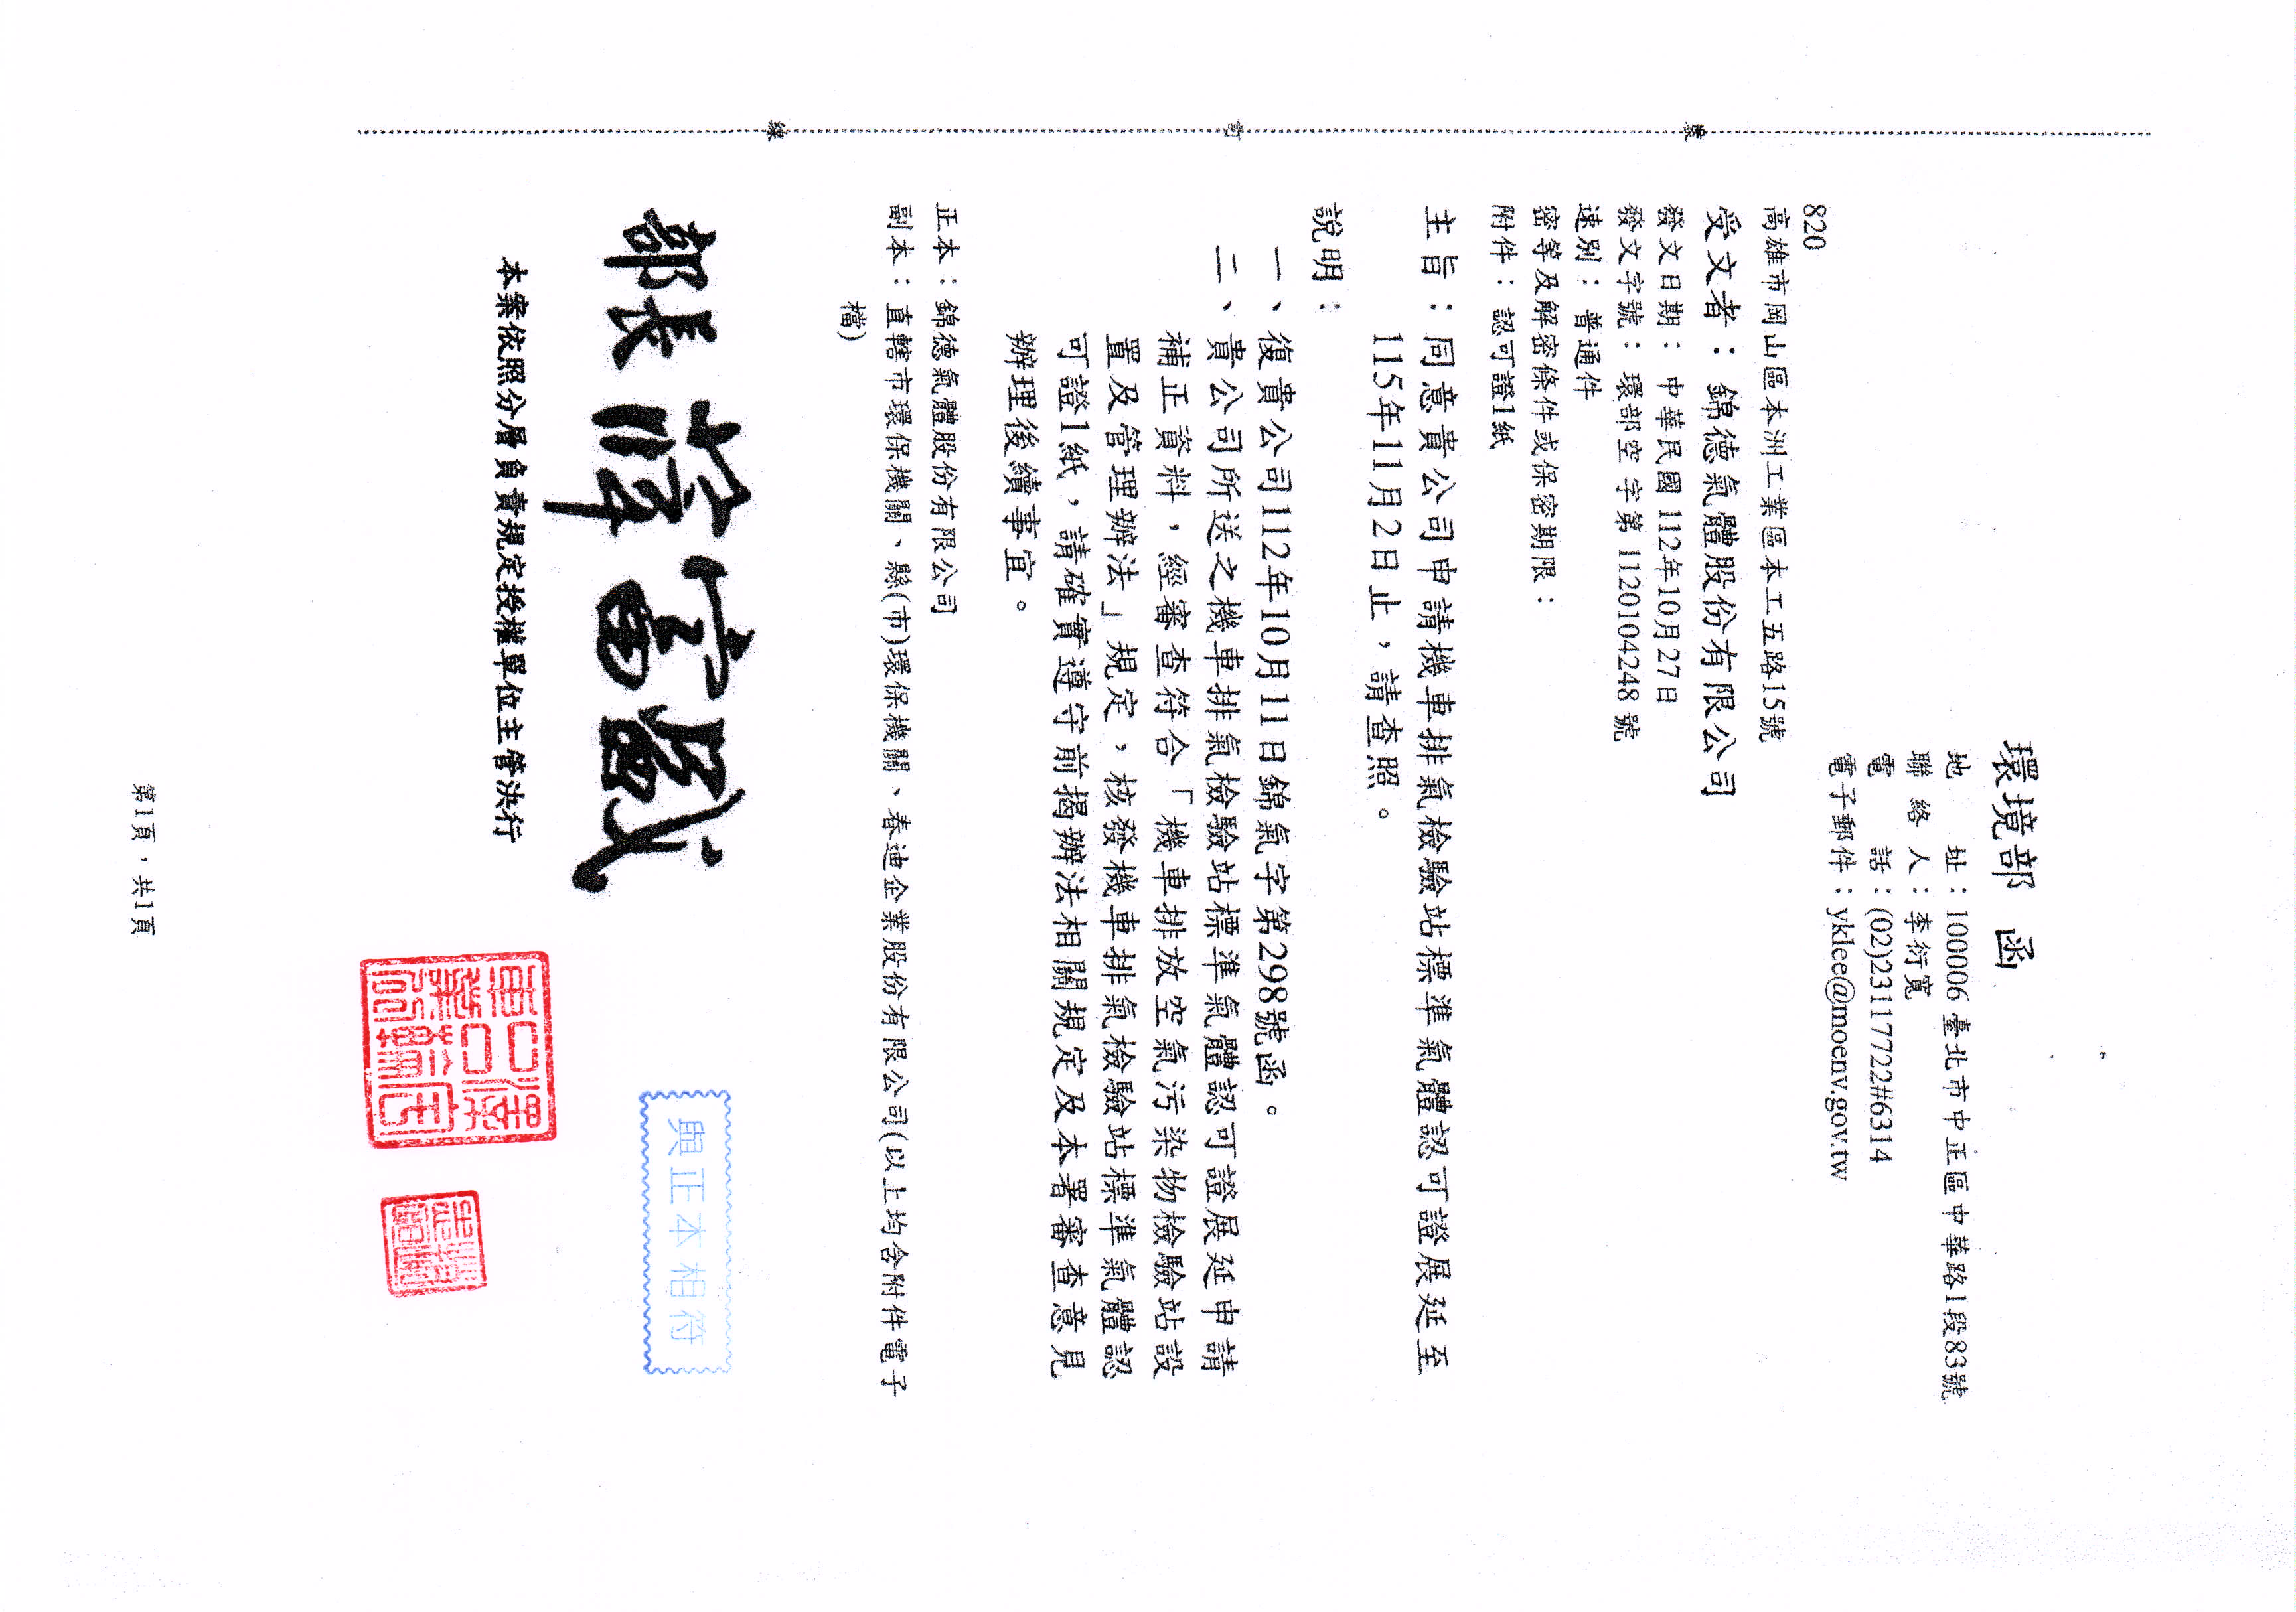 環境部 函
地 址：100006 臺北市中正區中華路1段83號
聯 絡 人：李衍寬
電 話：(02)23117722#6314
電子郵件：yklee@moenv.gov.tw
820
高雄市岡山區本洲工業區本工五路15號
受文者：錦德氣體股份有限公司
發文日期：中華民國112年10月27日
發文字號：環部空字第1120104248號
速別：普通件
密等及解密條件或保密期限：
附件：認可證1紙
主旨：同意貴公司申請機車排氣檢驗站標準氣體認可證展延至
115年11月2日止，請查照。
說明：
一、復貴公司112年10月11日錦氣字第298號函。
二、貴公司所送之機車排氣檢驗站標準氣體認可證展延申請
補正資料，經審查符合「機車排放空氣污染物檢驗站設
置及管理辦法」規定，核發機車排氣檢驗站標準氣體認
可證1紙，請確實遵守前揭辦法相關規定及本署審查意見
辦理後續事宜。
正本：錦德氣體股份有限公司
副本：直轄市環保機關、縣(市)環保機關、春迪企業股份有限公司(以上均含附件電子
檔)
部長 薛富盛
與正本相符
本案依照分層負責規定授權單位主管決行
第1頁，共1頁
裝
訂
線